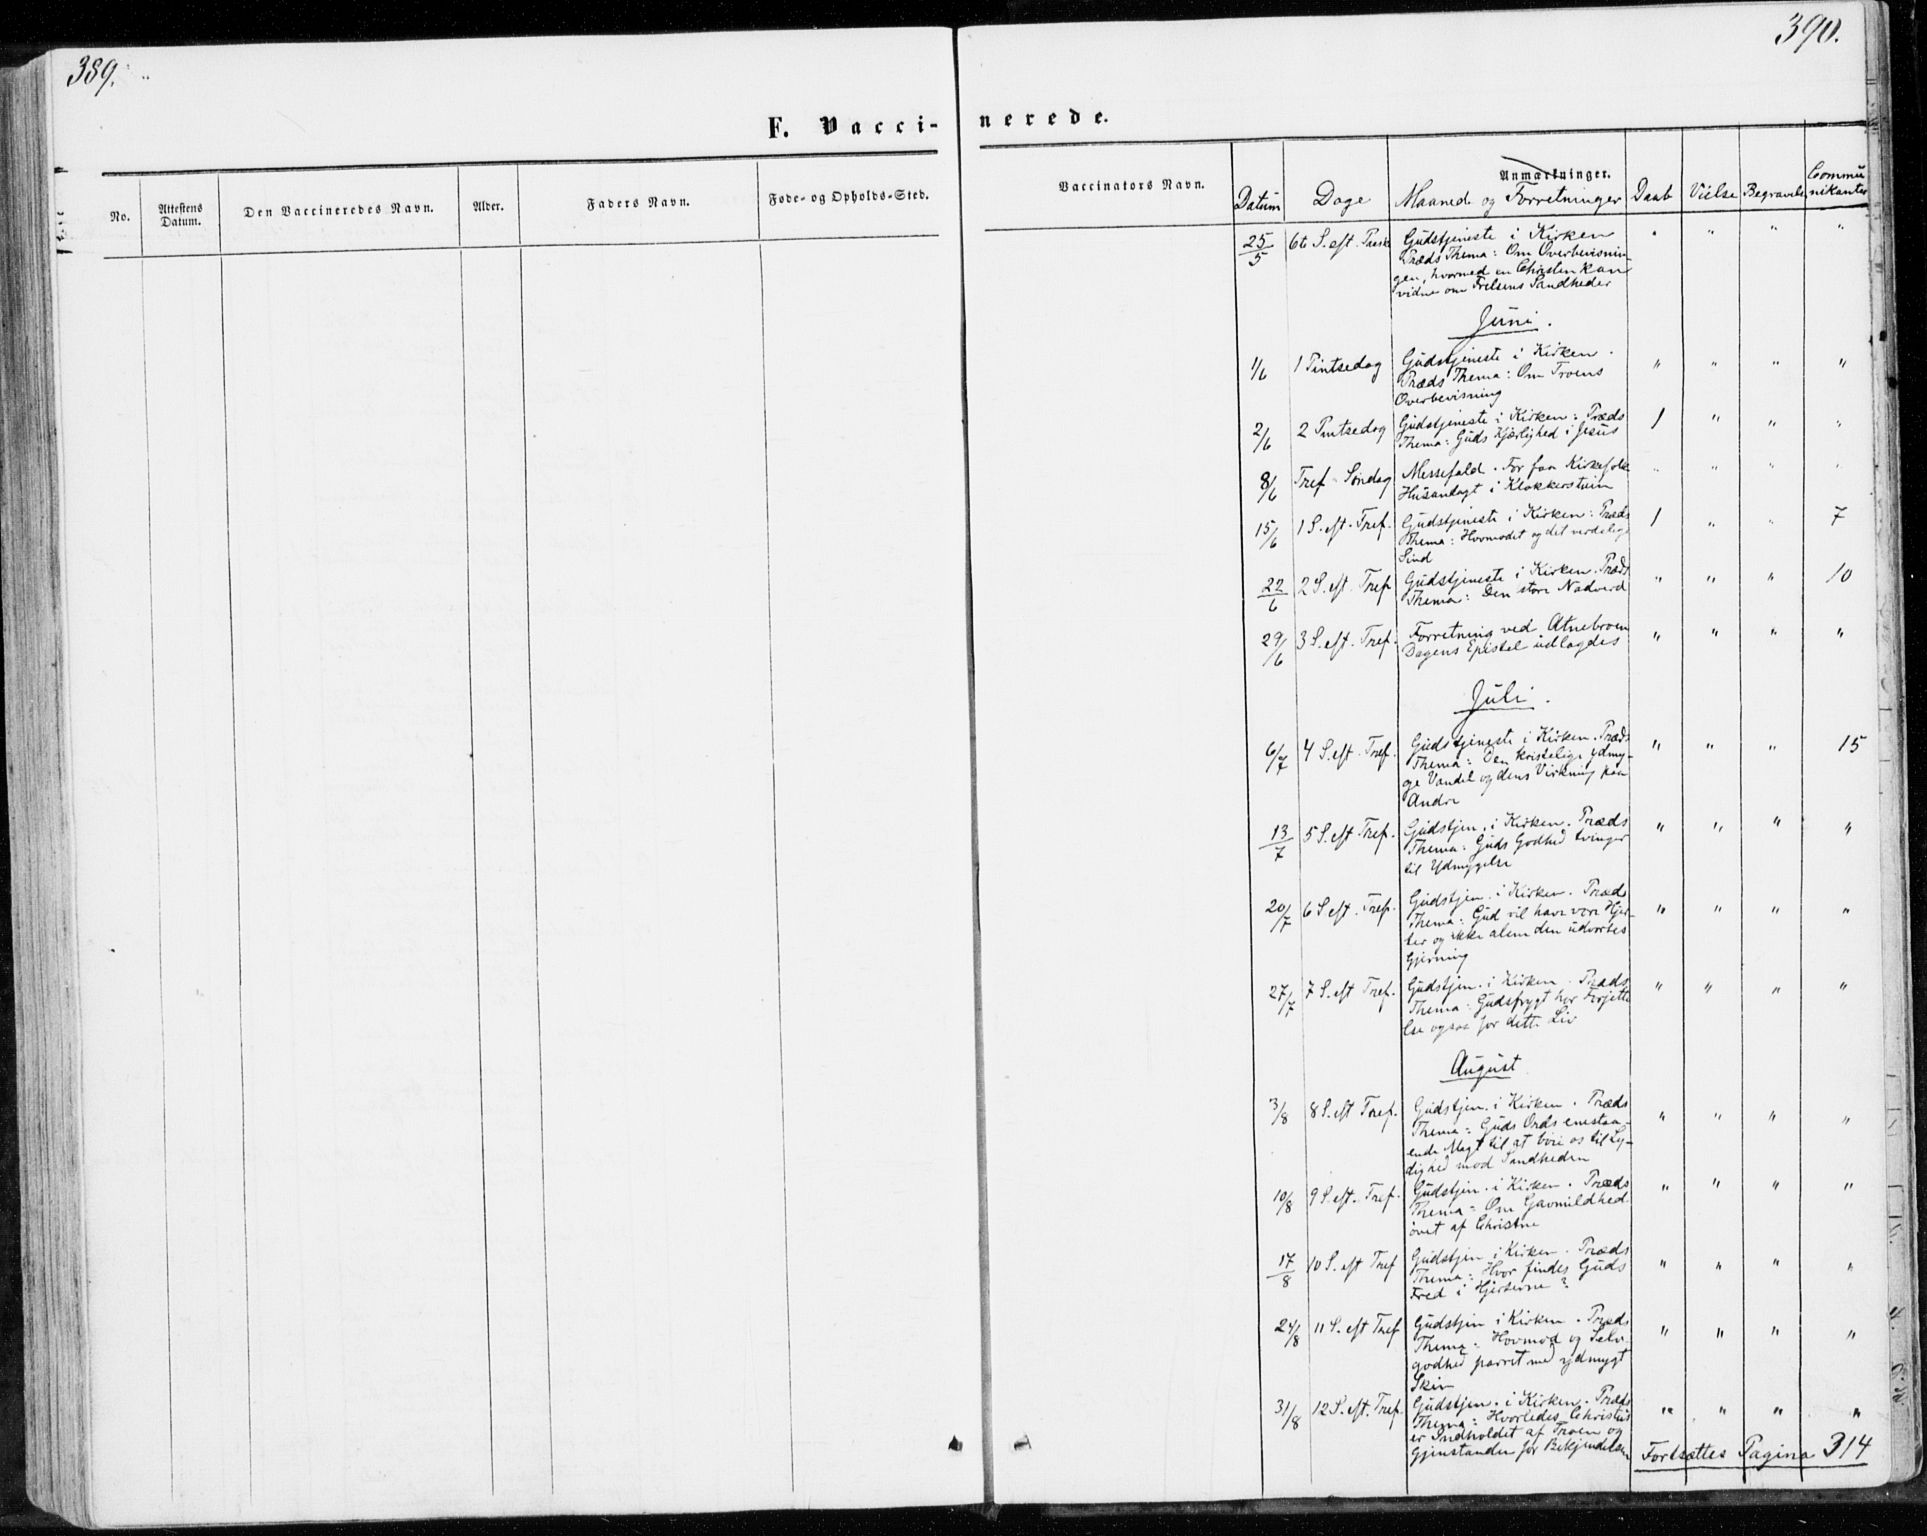 389.
390.
F. Vacci-
nerede.
No.
Attestens Datum.
Den Vaccineredes Navn.
Alder.
Faders Navn.
Føde- og Opholds-Sted.
Vaccinators Navn.
Anmærkninger.
Datum
Dage
Maaned og Forretninger
Daab
Vielse
Begravelse
Commu
nikanter
25/5 6te S. eft. Paaske Gudstjeneste i Kirken " " " "
Præds Thema: Om Overbevisnin-
gen, hvormed en Christen kan
vidne om Frelsens Sandheder
Juni.
1/6 1 Pintsedag Gudstjeneste i Kirken. " " " "
Præds Thema: Om Troens
Overbevisning
2/6 2 Pintsedag Gudstjeneste i Kirken: Præds 1 " " "
Thema: Guds Kjærlighed i Jesus
8/6 Tref. Søndag Messefald. For faa Kirkefolk " " " "
Husandagt i Klokkerstuen
15/6 1 S. eft. Tref. Gudstjeneste i Kirken: Præds 1 " " 7
Thema: Hovmodet og det verdslige
Sind
22/6 2 S. eft. Tref Gudstjeneste i Kirken. Præds " " " 10
Thema: Den store Nadverd
29/6 3 S. eft. Tref. Forretning ved Atnebroen " " " "
Dagens Epistel udlagdes
Juli.
6/7 4 S. eft. Tref. Gudstjeneste i Kirken. Præds " " " 15
Thema: Den kristelige ydmy-
ge Vandel og dens Virkning paa
Andre
13/7 5 S. eft Tref. Gudstjen. i Kirken. Præds " " " "
Thema: Guds Godhed tvinger
til Ydmygelse
20/7 6 S eft. Tref. Gudstjen. i Kirken. Præds " " " "
Thema: Gud vil have vore Hjer-
ter og ikke alene den udvortes
Gjerning
27/7 7 S. eft Tref. Gudstjen. i Kirken. Præds " " " "
Thema: Gudsfrygt har Forjette
lse ogsaa for dette Liv
August
3/8 8 S. eft Tref. Gudstjen. i Kirken. Præds " " " "
Thema: Guds Ords enestaa-
ende Magt til at böie os til Ly-
dighed mod Sandheden
10/8 9 S. eft. Tref. Gudstjen. i Kirken. Præds " " " "
Thema: Om Gavmildhed
övet af Christne
17/8 10 S. eft Tref Gudstjen i Kirken. Præds " " " "
Thema: Hvor findes Guds
Fred i Hjerterne?
24/8 11 S. eft Tref Gudstjen i Kirken. Præds " " " "
Thema: Hovmod og Selv-
godhed parret med ydmygt
Skin
31/8 12 S. eft. Tref. Gudstjen. i Kirken. Præds " " " "
Thema: Hvorledes Christus
er Indholdet af Troen og
Gjenstanden for Bekjendelsen
Fortsættes Pagina 314